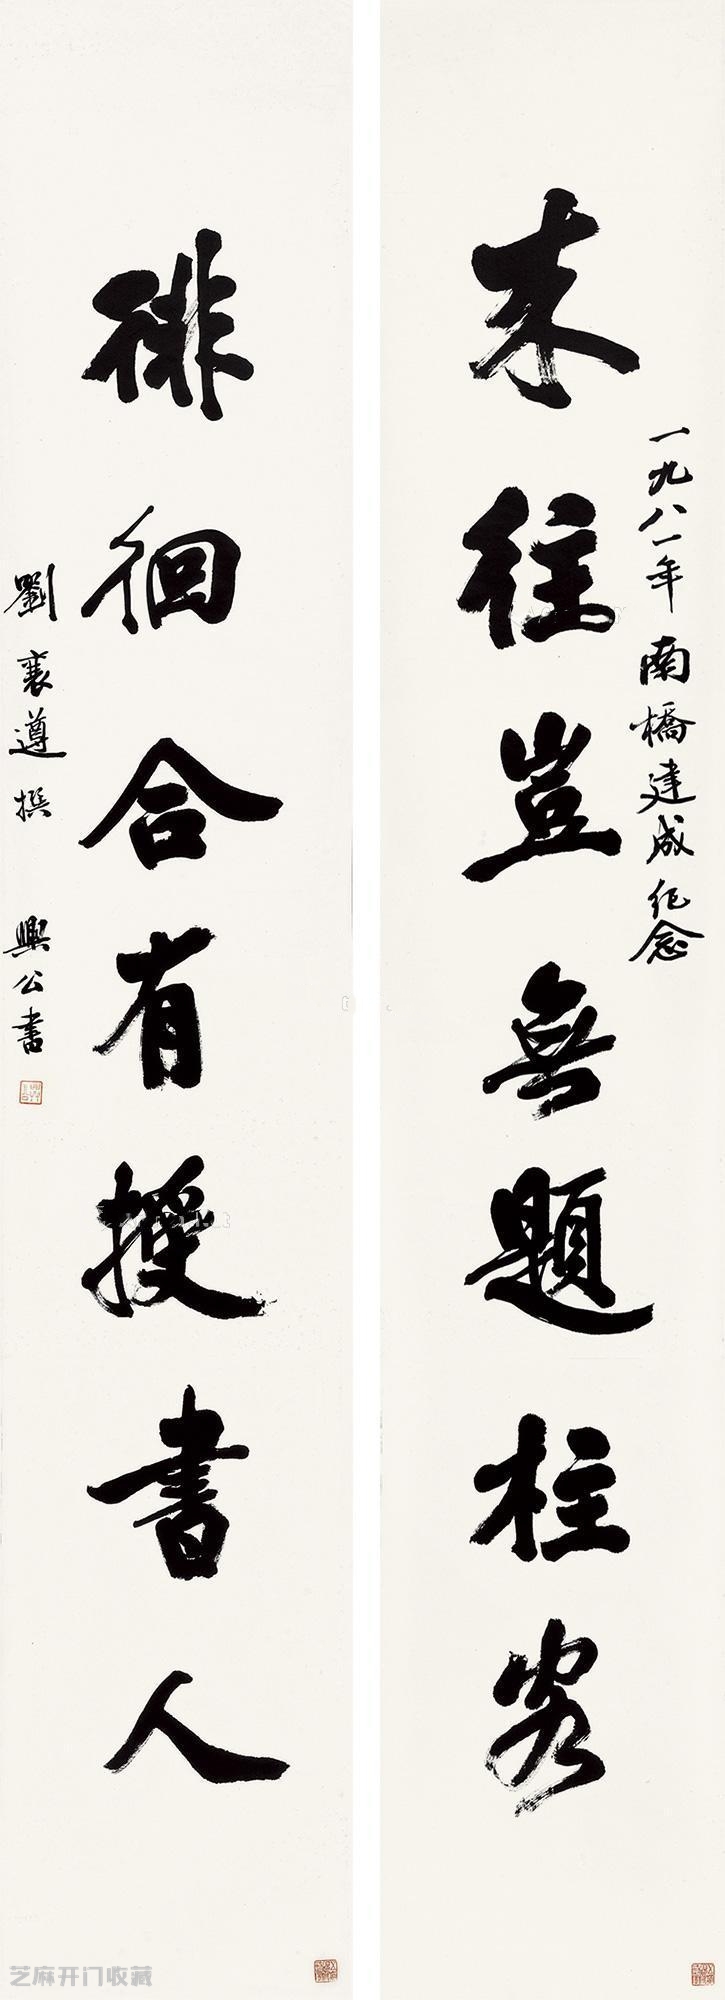 一九八一年南橋建成紀念
来往豈無題柱客
徘徊合有授書人
劉襄遵撰 興公書
芝麻开门收藏